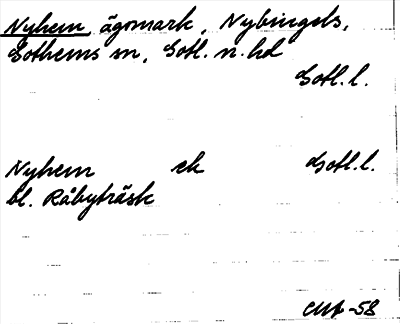 Nyhem ägomark, Nybingels,
Gothems sn, Gotl. n. hd
Gotl. l.
Nyhem ek Gotl. l.
bl. Råbyträsk
-58